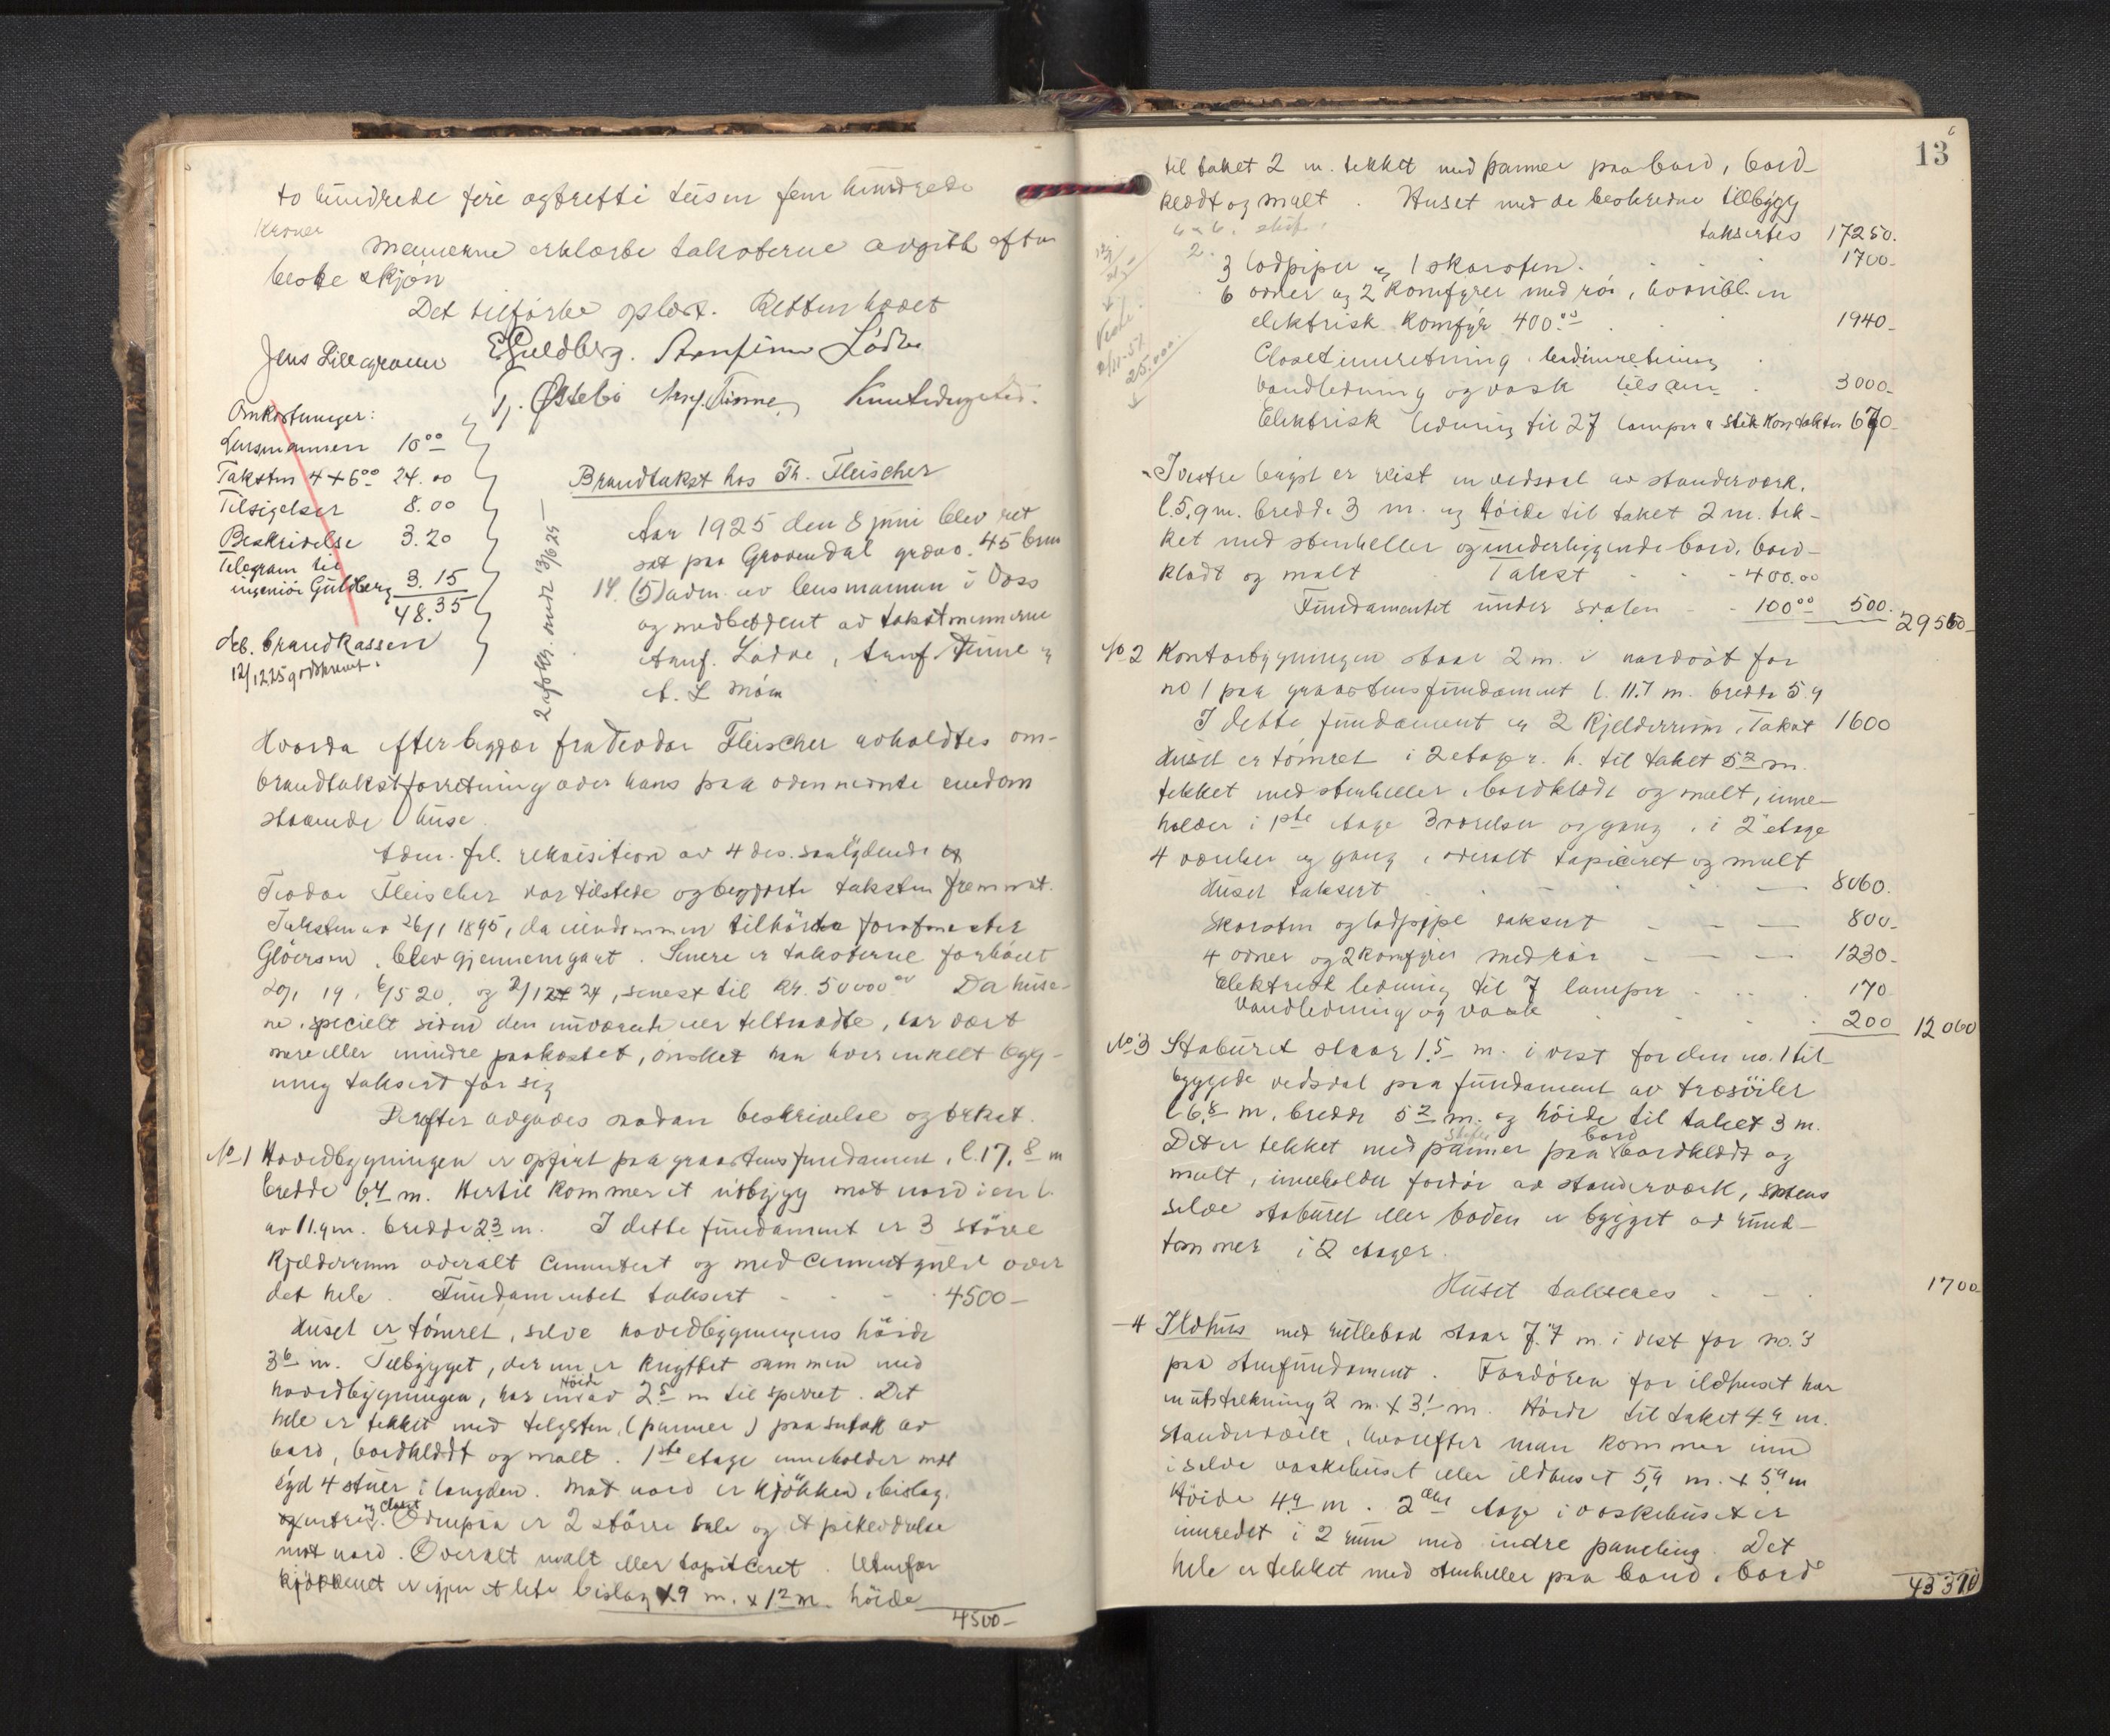 to hundrede fire ogtretti tusen fem hundrede
kroner
Mennerne erklærte taksterne avgitt efter
beste skjøn
Det tilførte oplæst. Retten hævet
Jens Lillegraven E Guldberg. Arnfinn Lødve
Tj. Østebø Knut
Omkostninger:
Lensmannen 10 00
Taksten 4 + 6 00 24.00
Tilsigelser 8.00
Beskrivelse 3.20
Telegram til
ingeniør Guldberg 3.15
48.35
deb. brandkassen
12/12 25 godkjent.
2 afskr. sendt 13/6 25 –
Brandtakst hos Th. Fleischer
Aar 1925 den 8 juni blev ret
sat paa Grovendal grævo. 45 brn
14. (5) adm. av lensmannen i Voss
og medbetjent av takstmennerne
Arnf. Lødve, Arnf. Finne og
A. L Møen
Hvorda efter begjær fra Teodor Fleischer avholdtes om-
brandtakstforretning over hans paa ovennevnte eiendom
staaende huse.
Adm. frl. rekvisition av 4 ds. saalydende
Teodor Fleischer var tilstede og begjærte taksten fremmet.
Taksten av 26/1 1895, da eiendommen tilhørte forstmester
Gløersen, blev gjennemgaat. Senere er taksterne forhøiet
19, 6/5 20, og 2/12 24, senest til kr. 50000 00 Da huse-
ne, specielt siden den nuværende eier tiltraadte, har vært
mere eller mindre paakostet, ønsket han hver enkelt byg-
ning taksert for sig
Derefter avgaves saadan beskrivelse og takst.
No 1 Hovedbygningen er opført paa graastensfundament, l. 17,8 m
bredde 6,4 m. Hertil kommer et utbygg mot nord i en l.
av 11.9 m. bredde 2,3 m. I dette fundament er 3 större
kjelderrum overalt cementert og med cementgulv over
det hele. Fundamentet taksert - - - 4500 –
Huset er tömret, selve hovedbygningens höide
3 6 m. Tilbygget, der nu er knyttet sammen med
hovedbygningen, har Höide 2 5 m til sperret. Det
hele er tekket med teglsten, (panner) paa sutak av
bord, bordklædt og malt. 1ste etage inneholder mot
syd 4 stuer i længden. Mot nord er kjökken, bislag,
og entre og closet. Ovenpaa er 2 större sale og et pikeværelse
mot nord. Overalt malt eller tapitceret. Utenfor
kjökkenet er igjen et lite bislag 1,9 m. x 1 2 m. höide
4500 –
13
til taket 2 m. tekket med panner paa bord, bord-
klædt og malt. Huset med de beskrevne tilbygg
taksertes 17250.
3 lodpiper og 1 skorsten. 1700 –
6 ovner og 2 komfyrer med rör, hvoribl. en
elektrisk komfyr 400 00 1940 –
Closetinnretning, badinnretning
vandledning og vask tilsam. 3000 –
Elektrisk ledning til 27 lamper & stikkontakter 670 –
I vestre bygst er reist en vedsval av standerværk,
l. 5,9 m. bredde 3 m. og höide til taket 2 m. tek-
ket med stenheller og underliggende bord, bord-
klædt og malt Takst - - 400.00
Fundamentet under svalen - - 100 00 500.
29560 –
No 2 Kontorbygningen staar 2 m. i nordvöst for
no 1 paa graastensfundament l. 11.7 m. bredde 5.9
I dette fundament er 2 kjelderrum, Takst 1600
Huset er tömret i 2 etager. h. til taket 5 2 m.
tekket med stenheller, bordklædt og malt, inne-
holder i 1ste etage 3 værelser og gang, i 2 etage
4 værelser og gang, overalt tapiceret og malt
Huset taksert 8060.
Skorsten og lodpipe taksert 800 –
4 ovner og 2 komfyrer med rör 1230 –
Elektrisk ledning til 7 lamper 170
Vandledning og vask 200 12060
No 3 Staburet staar 1.5 m. i vest for den no. 1 til-
byggede vedsval paa fundament av træsöiler
l 6.8 m. bredde 5 2 m. og höide til taket 3 m.
Det er tekket med panner paa bord bordklædt og
malt, inneholder fordör av standerværk, mens
selve staburet eller boden er bygget av rund-
tömmer i 2 etager.
Huset takseres - - . 1700
– 4 Ildhus med rullebod staar 7.4 m. i vest for no. 3
paa stenfundament. Fordören for ildhuset har
en utstrekning 2 m. x 3,1 m. Höide til taket 4.9 m.
Standerværk, hvorefter man kommer inn
i selve vaskehuset eller ildhuset 5,9 m. x 5,9 m
Höide 4,9 m. 2den etage i vaskehuset er
innredet i 2 rum med indre paneling. Det
hele er tekket med stenheller paa bord, bord
43310